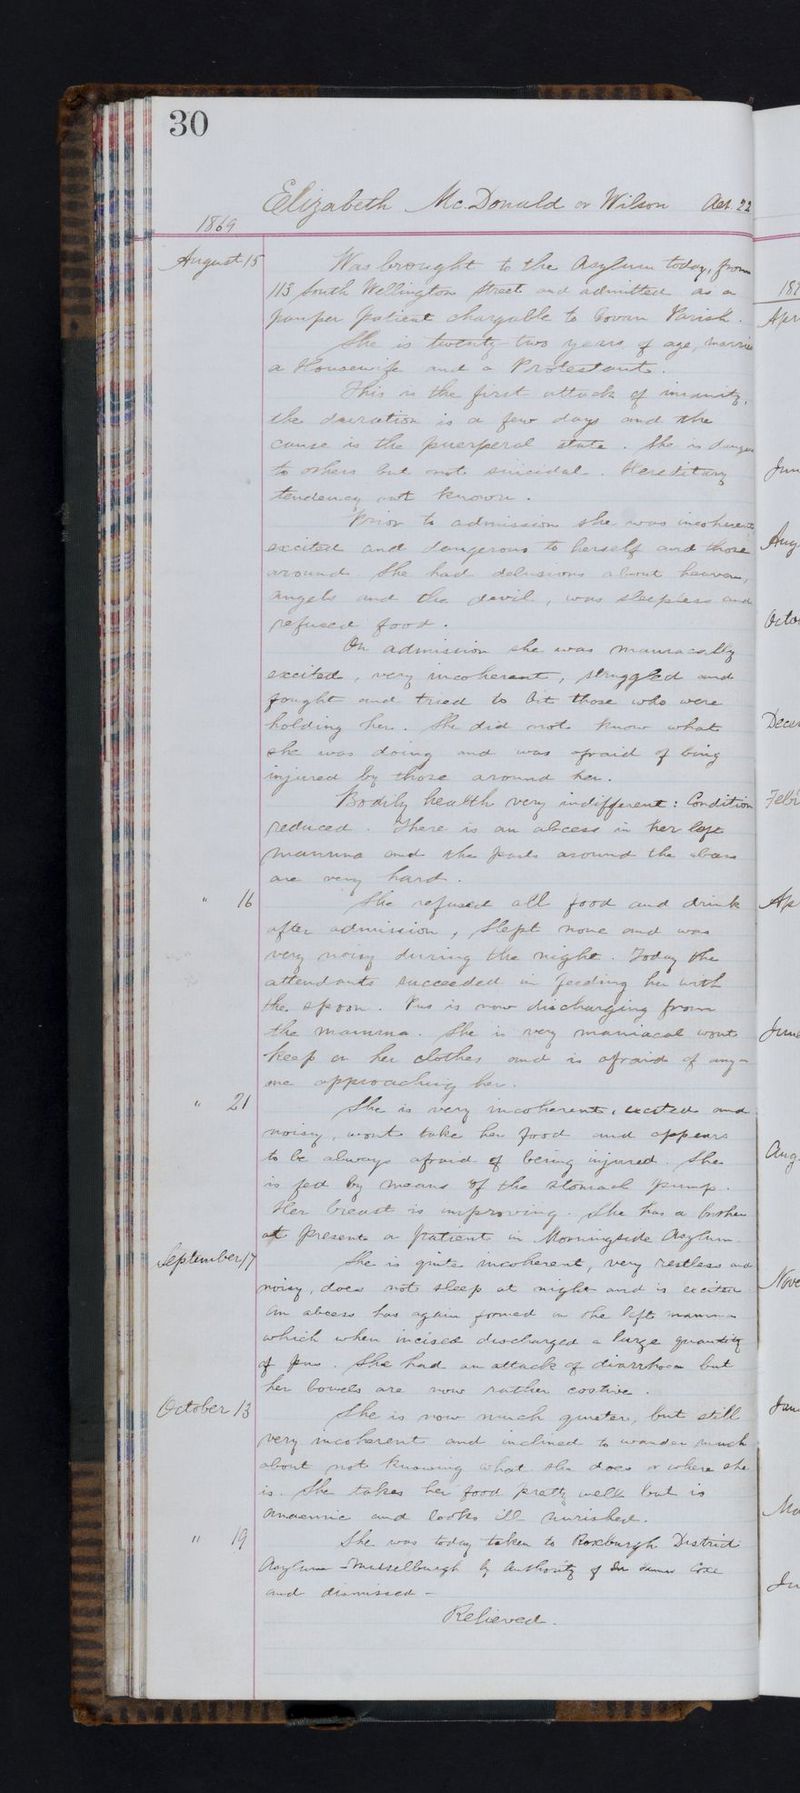 30
Elizabeth McDonald or Wilson Aet. 22
1869
August 15 Was brought to the Asylum today, from
113 South Wellington Street and admitted as a
pauper patient chargable to Govan Parish.
She is twenty two years of age, married
a Housewife and a Protestant.
This is the first attack of insanity,
the duration is a few days and the
cause is the puerperal state. She is danger
to others but not suicidal. Hereditary
tendency not known.
Prior to admission she was incoherent
excited and dangerous to herself and those
around She had delusions about heaven,
angels and the devil, was sleepless and
refused food.
On admission she was maniacally
excited, very incoherent, struggled and
fought and tried to bit those who were
holding her. She did not know what
she was doing and was afraid of being
injured by those around her.
Bodily health very indifferent: Condition
reduced. There is an abcess in her left
mamma and the parts around the abcess
are very hard.
" 16 She refused all food and drink
after admission, slept none and was
very noisy during the night. Today the
attendants succeeded in feeding her with
the spoon. Pus is now discharging from
the mamma. She is very maniacal wont
keep on her clothes and is afraid of any-
one approaching her.
" 21 She is very incoherent, excited and
noisy, wont take her food and appears
to be always afraid of being injured. She
is fed by means of the stomach pump.
Her breast is improving. She has a brother
at present a patient in Morningside Asylum
September 17 She is quite incoherent, very restless and
noisy, does not sleep at night and is excited
An abcess has again formed in the left mamma
which when incised discharged a large quantity
of pus. She had an attack of diarrhoea but
her bowels are now rather costive.
October 13 She is now much quieter, but still
very incoherent and inclined to wander much
about not knowing what she does or where she
is. She takes her food pretty well but is
anaemic and looks ill nurished.
" 19 She was today taken to Roxburgh District
Asylum Musselburgh by Authority of Sir James Coxe
and dismissed -
Relieved.
187
Apr
Jun
Aug
Octo
Decem
Febr
Ap
June
Aug
Nove
Jan
Ma
Ju